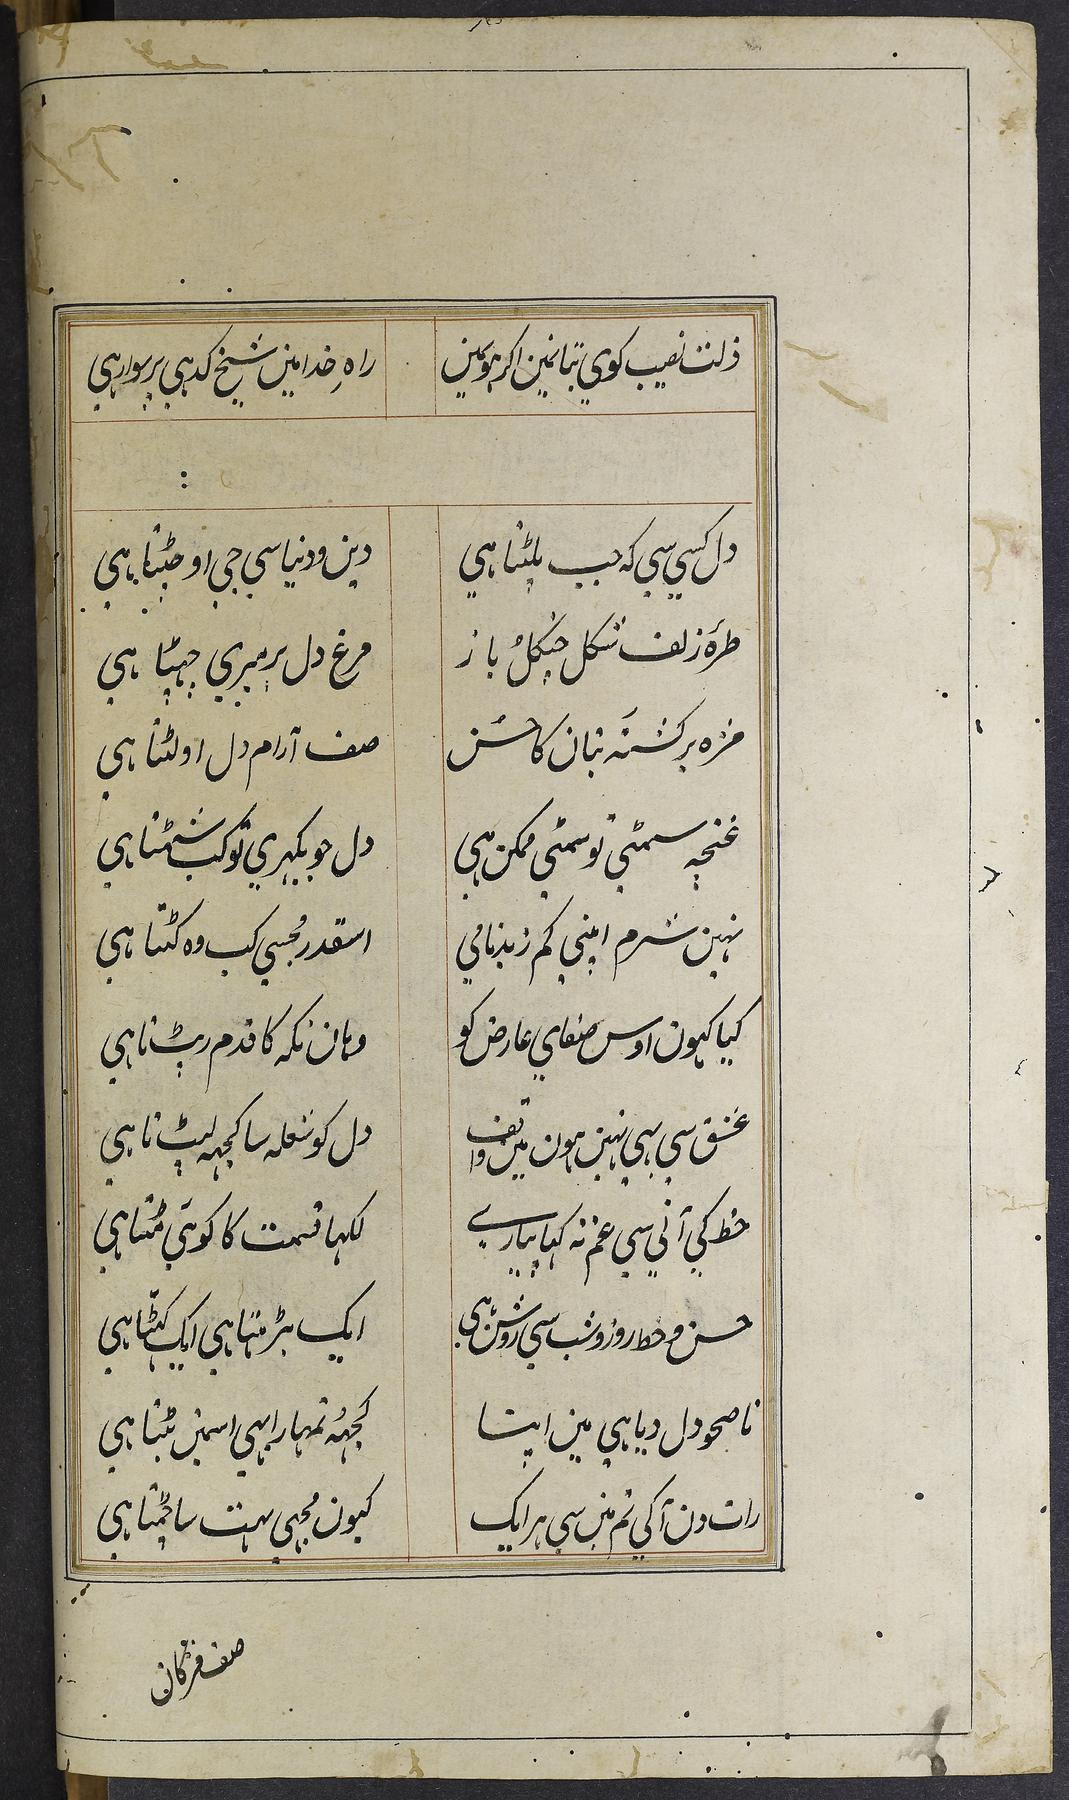 ذلت نصیب کوی بتانمین اکر هوئمین
راہِ خدا مین شیخ کدہی پر سوار ہی
دل کسی سی کہ جب پلٹتا ہی
دین و دنیا سی جی اوچٹتا ہی
طرۂ زلف شکل چنکل باز
مرغ دل پر میری جهپٹا ہی
مژہ برکشتہ بتان کا حسن
صف آرام دل اولٹتا ہی
غنچہ سمٹی تو سمٹی ممکن ہی
دل جو بکہری تو کب سمٹتا ہی
نہین شرم اپنی کم ز بدنامی
اسقدر مجسی کب وہ کٹتا ہی
کیا کہون اوس صفای عارض کو
وہان نکہ کا قدم رپٹتا ہی
عشق سی ہی نہین ہون مین واقف
دل کو شعلہ سا کچہہ لپٹتا ہی
خط کی آنی سی غم نہ کہا پیاری
لکہا قسمت کا کوئی مٹتا ہی
حسن و خط روز و شب سی روشن ہی
ایک بڑهتا ہی ایک کہٹتا ہی
ناصحو دل دیا ہی مین اپنا
کچہہ تمہارا بہی اسمین بٹتا ہی
رات دن آکی تم مین سی ہر ایک
کیون مجہی بہت سا چمٹتا ہی
صف مژکان